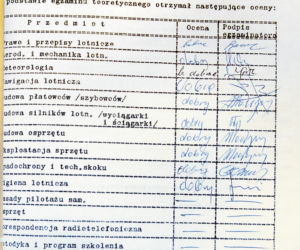 podstawie egzaminu teoretycznego otrzymał następujące oceny:
Przedmiot Ocena Podpis
Prawo i przepisy lotnicze
mechanika lotn. dobry
meteorologia
nawigacja lotnicza dobry
budowa płatowców /szybowców/ dobry
budowa silników lotn. /wyciągarki i ściągarki/ dobry
budowa osprzętu dobry
eksploatacja sprzętu dobry
spadochrony i tech.skoku dobry
higiena lotnicza dobry
zasady pilotażu sam. —
sprzęt —
korespondencja radiotelefoniczna —
metodyka i program szkolenia —